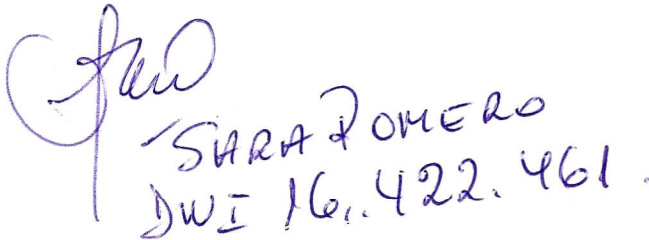 SARA ROMERO
DNI 16.422.461.